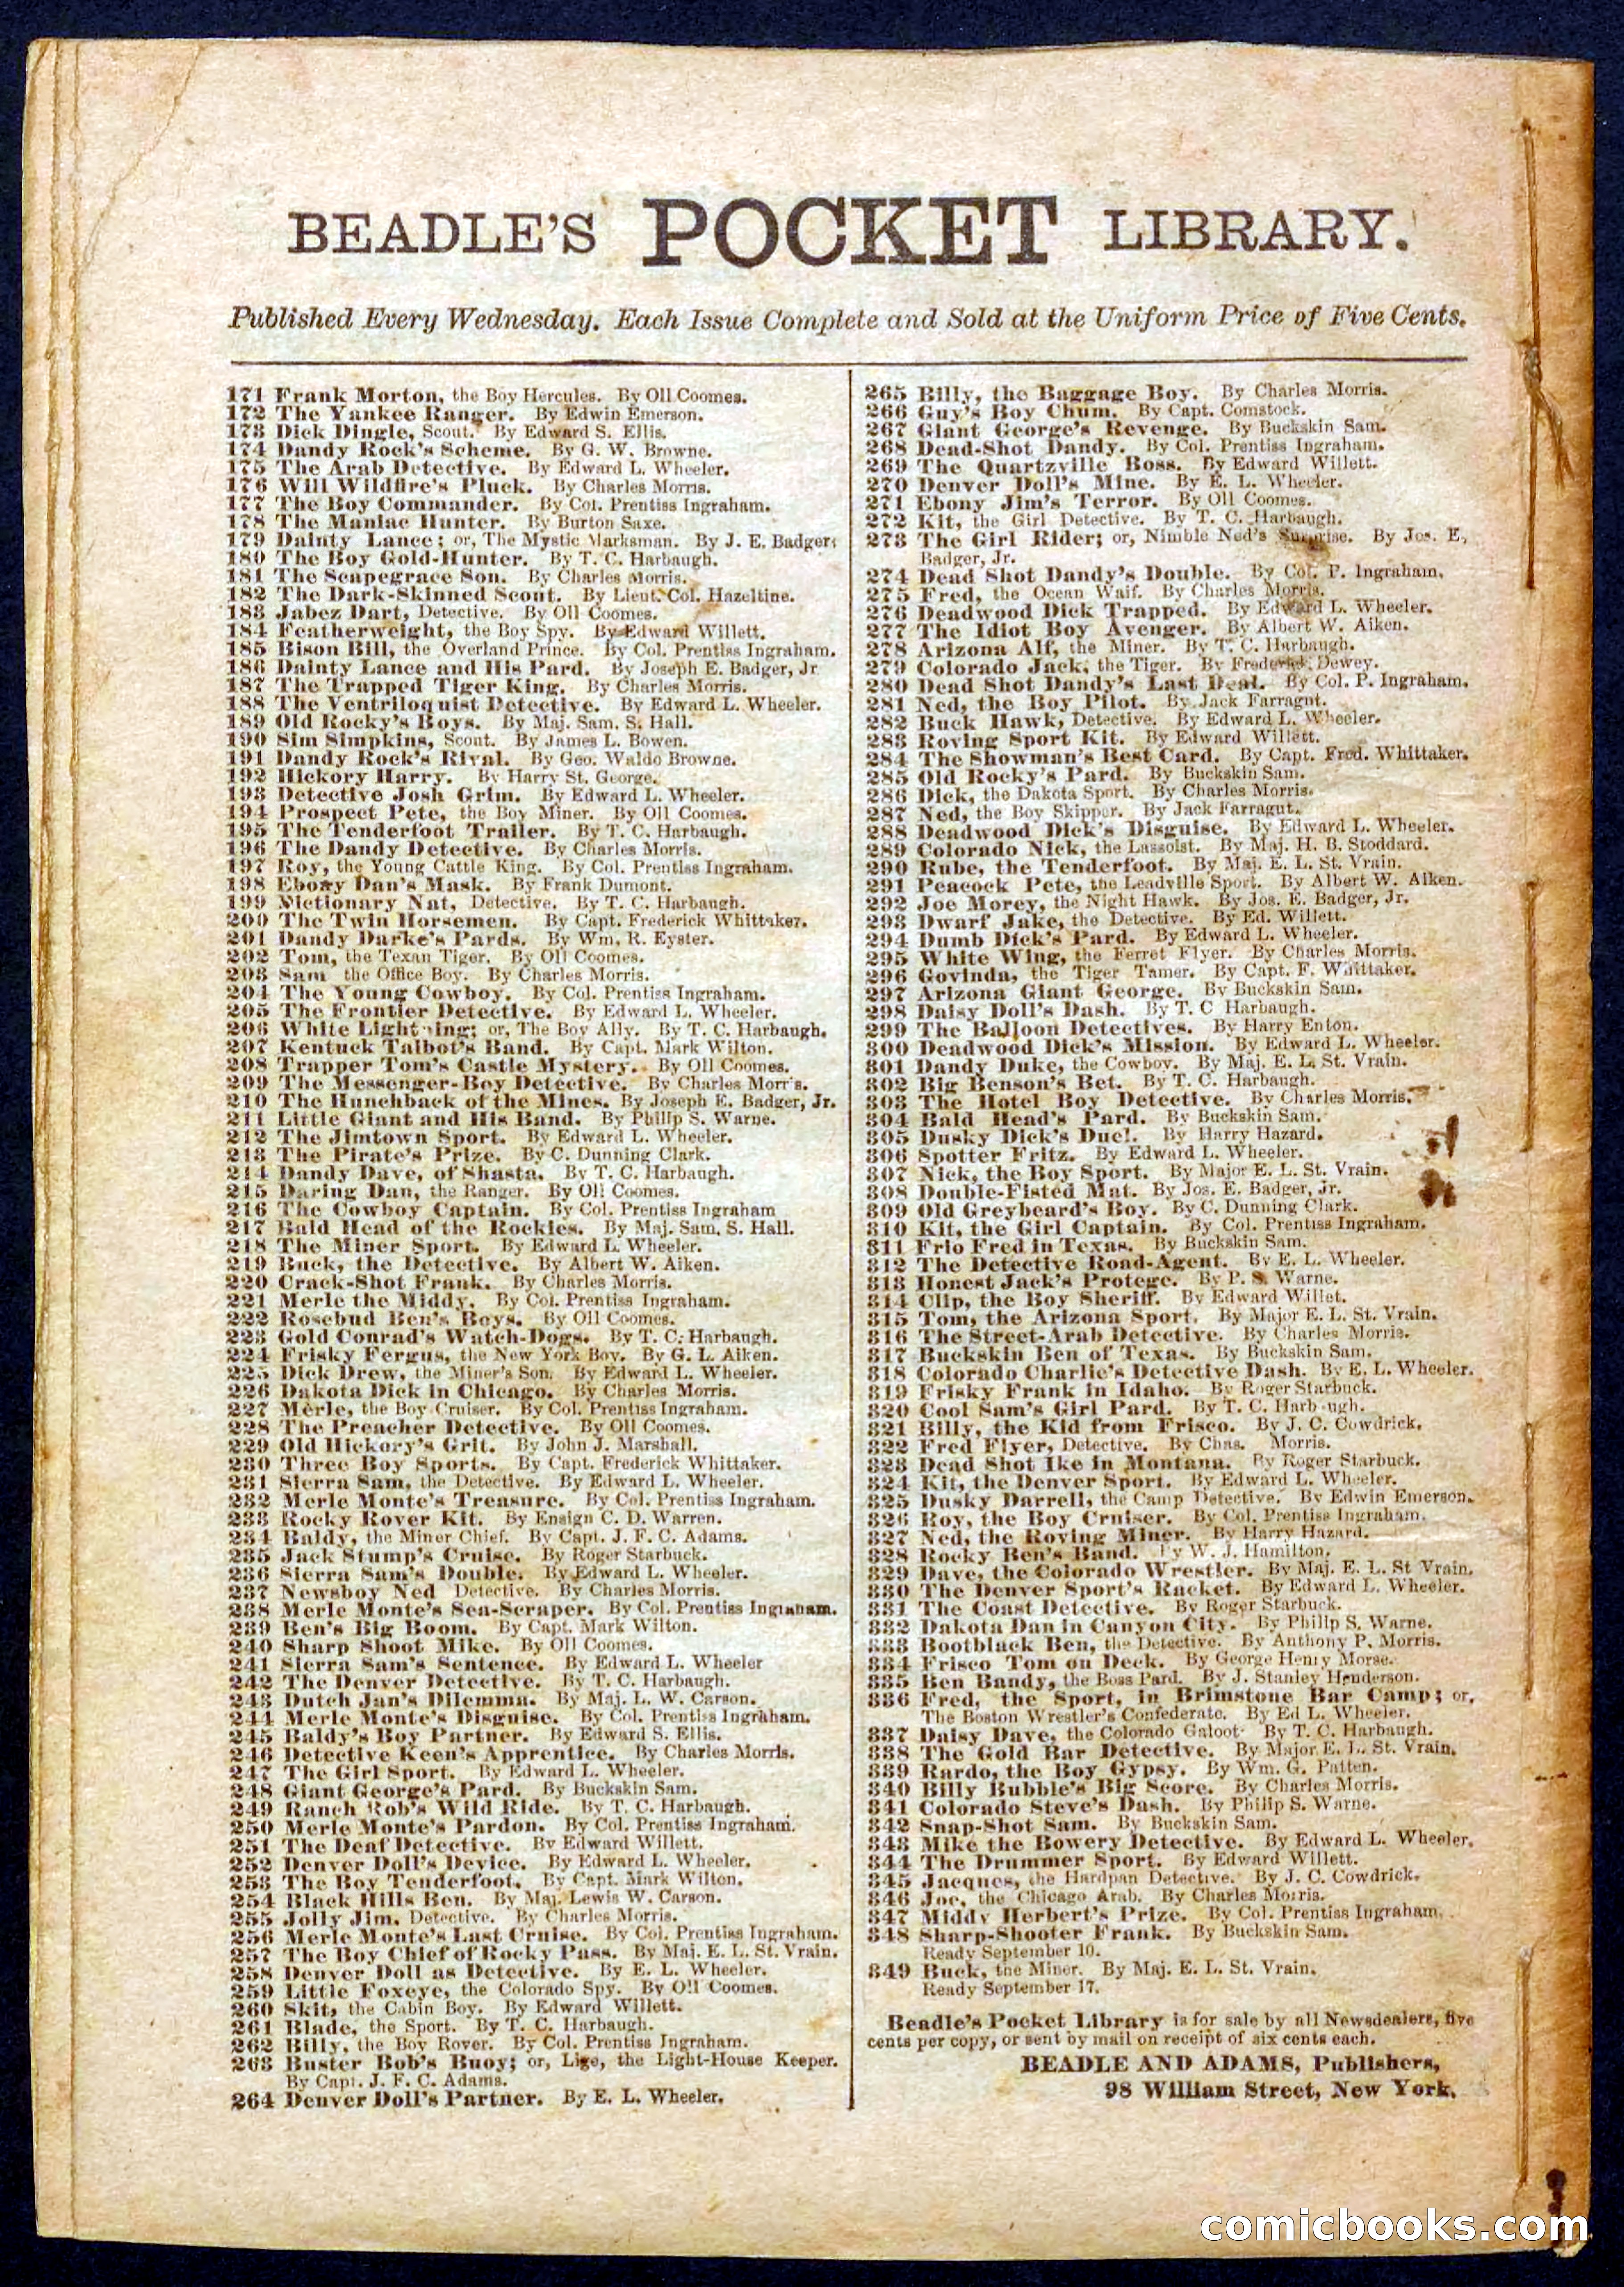 BEADLE'S POCKET LIBRARY.
Published Every Wednesday. Each Issue Complete and Sold at the Uniform Price of Five Cents.
171 Frank Morton, the Boy Hercules. By Oll Coomes.
172 The Yankee Ranger. By Edwin Emerson.
173 Dick Dingle, Scout. By Edward S. Ellis.
174 Dandy Rock's Scheme. By G. W. Browne.
175 The Arab Detective. By Edward L. Wheeler.
176 Will Wildfire's Pluck. By Charles Morris.
177 The Boy Commander. By Col. Prentiss Ingraham.
178 The Maniac Hunter. By Burton Saxe.
179 Dainty Lance; or, The Mystic Marksman. By J. E. Badger;
180 The Boy Gold-Hunter. By T. C. Harbaugh.
181 The Scapegrace Son. By Charles Morris.
182 The Dark-Skinned Scout. By Lieut. Col. Hazeltine.
183 Jabez Dart, Detective. By Oll Coomes.
184 Featherweight, the Boy Spy. By Edward Willett.
185 Bison Bill, the Overland Prince. By Col. Prentiss Ingraham.
186 Dainty Lance and His Pard. By Joseph E. Badger, Jr
187 The Trapped Tiger King. By Charles Morris.
188 The Ventriloquist Detective. By Edward L. Wheeler.
189 Old Rocky's Boys. By Maj. Sam. S. Hall.
190 Sim Simpkins, Scout. By James L. Bowen.
191 Dandy Rock's Rival. By Geo. Waldo Browne.
192 Hickory Harry. By Harry St. George.
193 Detective Josh Grim. By Edward L. Wheeler.
194 Prospect Pete, the Boy Miner. By Oll Coomes.
195 The Tenderfoot Trailer. By T. C. Harbaugh.
196 The Dandy Detective. By Charles Morris.
197 Roy, the Young Cattle King. By Col. Prentiss Ingraham.
198 Ebony Dan's Mask. By Frank Dumont.
199 Dictionary Nat, Detective. By T. C. Harbaugh.
200 The Twin Horsemen. By Capt. Frederick Whittaker.
201 Dandy Darke's Pards. By Wm. R. Eyster.
202 Tom, the Texan Tiger. By Oll Coomes.
203 Sam the Office Boy. By Charles Morris.
204 The Young Cowboy. By Col. Prentiss Ingraham.
205 The Frontier Detective. By Edward L. Wheeler.
206 White Lightning; or, The Boy Ally. By T. C. Harbaugh.
207 Kentuck Talbot's Band. By Capt. Mark Wilton.
208 Trapper Tom's Castle Mystery. By Oll Coomes.
209 The Messenger-Boy Detective. By Charles Morris.
210 The Hunchback of the Mines. By Joseph E. Badger, Jr.
211 Little Giant and His Band. By Philip S. Warne.
212 The Jimtown Sport. By Edward L. Wheeler.
213 The Pirate's Prize. By C. Dunning Clark.
214 Dandy Dave, of Shasta. By T. C. Harbaugh.
215 Daring Dan, the Ranger. By Oll Coomes.
216 The Cowboy Captain. By Col. Prentiss Ingraham
217 Bald Head of the Rockies. By Maj. Sam. S. Hall.
218 The Miner Sport. By Edward L. Wheeler.
219 Buck, the Detective. By Albert W. Aiken.
220 Crack-Shot Frank. By Charles Morris.
221 Merle the Middy. By Col. Prentiss Ingraham.
222 Rosebud Ben's Boys. By Oll Coomes.
223 Gold Conrad's Watch-Dogs. By T. C. Harbaugh.
224 Frisky Fergus, the New York Boy. By G. L. Aiken.
225 Dick Drew, the Miner's Son. By Edward L. Wheeler.
226 Dakota Dick in Chicago. By Charles Morris.
227 Merle, the Boy Cruiser. By Col. Prentiss Ingraham.
228 The Preacher Detective. By Oll Coomes.
229 Old Hickory's Grit. By John J. Marshall.
230 Three Boy Sports. By Capt. Frederick Whittaker.
231 Sierra Sam, the Detective. By Edward L. Wheeler.
232 Merle Monte's Treasure. By Col. Prentiss Ingraham.
233 Rocky Rover Kit. By Ensign C. D. Warren.
234 Baldy, the Miner Chief. By Capt. J. F. C. Adams.
235 Jack Stump's Cruise. By Roger Starbuck.
236 Sierra Sam's Double. By Edward L. Wheeler.
237 Newsboy Ned Detective. By Charles Morris.
238 Merle Monte's Sea-Scraper. By Col. Prentiss Ingraham.
239 Ben's Big Boom. By Capt. Mark Wilton.
240 Sharp Shoot Mike. By Oll Coomes.
241 Sierra Sam's Sentence. By Edward L. Wheeler
242 The Denver Detective. By T. C. Harbaugh.
243 Dutch Jan's Dilemma. By Maj. L. W. Carson.
244 Merle Monte's Disguise. By Col. Prentiss Ingraham.
245 Baldy's Boy Partner. By Edward S. Ellis.
246 Detective Keen's Apprentice. By Charles Morris.
247 The Girl Sport. By Edward L. Wheeler.
248 Giant George's Pard. By Buckskin Sam.
249 Ranch Rob's Wild Ride. By T. C. Harbaugh.
250 Merle Monte's Pardon. By Col. Prentiss Ingraham.
251 The Deaf Detective. By Edward Willett.
252 Denver Doll's Device. By Edward L. Wheeler.
253 The Boy Tenderfoot. By Capt. Mark Wilton.
254 Black Hills Ben. By Maj. Lewis W. Carson.
255 Jolly Jim, Detective. By Charles Morris.
256 Merle Monte's Last Cruise. By Col. Prentiss Ingraham.
257 The Boy Chief of Rocky Pass. By Maj. E. L. St. Vrain.
258 Denver Doll as Detective. By E. L. Wheeler.
259 Little Foxeye, the Colorado Spy. By Oll Coomes.
260 Skit, the Cabin Boy. By Edward Willett.
261 Blade, the Sport. By T. C. Harbaugh.
262 Billy, the Boy Rover. By Col. Prentiss Ingraham.
263 Buster Bob's Buoy; or, Lige, the Light-House Keeper.
By Capt. J. F. C. Adams.
264 Denver Doll's Partner. By E. L. Wheeler.
265 Billy, the Baggage Boy. By Charles Morris.
266 Guy's Boy Chum. By Capt. Comstock.
267 Giant George's Revenge. By Buckskin Sam.
268 Dead-Shot Dandy. By Col. Prentiss Ingraham.
269 The Quartzville Boss. By Edward Willett.
270 Denver Doll's Mine. By E. L. Wheeler.
271 Ebony Jim's Terror. By Oll Coomes.
272 Kit, the Girl Detective. By T. C. Harbaugh.
273 The Girl Rider; or, Nimble Ned's Surprise. By Jos. E,
Badger, Jr.
274 Dead Shot Dandy's Double. By Col. P. Ingraham.
275 Fred, the Ocean Waif. By Charles Morris.
276 Deadwood Dick Trapped. By Edward L. Wheeler.
277 The Idiot Boy Avenger. By Albert W. Aiken.
278 Arizona Alf, the Miner. By T. C. Harbaugh.
279 Colorado Jack, the Tiger. By Frederick Dewey.
280 Dead Shot Dandy's Last Deal. By Col. P. Ingraham.
281 Ned, the Boy Pilot. By Jack Farragut.
282 Buck Hawk, Detective. By Edward L. Wheeler.
283 Roving Sport Kit. By Edward Willett.
284 The Showman's Best Card. By Capt. Fred. Whittaker.
285 Old Rocky's Pard. By Buckskin Sam.
286 Dick, the Dakota Sport. By Charles Morris.
287 Ned, the Boy Skipper. By Jack Farragut.
288 Deadwood Dick's Disguise. By Edward L. Wheeler.
289 Colorado Nick, the Lassoist. By Maj. H. B. Stoddard.
290 Rube, the Tenderfoot. By Maj. E. L. St. Vrain.
291 Peacock Pete, the Leadville Sport. By Albert W. Aiken.
292 Joe Morey, the Night Hawk. By Jos. E. Badger, Jr.
293 Dwarf Jake, the Detective. By Ed. Willett.
294 Dumb Dick's Pard. By Edward L. Wheeler.
295 White Wing, the Ferret Flyer. By Charles Morris.
296 Govinda, the Tiger Tamer. By Capt. F. Whittaker.
297 Arizona Giant George. By Buckskin Sam.
298 Daisy Doll's Dash. By T. C Harbaugh.
299 The Balloon Detectives. By Harry Enton.
300 Deadwood Dick's Mission. By Edward L. Wheeler.
301 Dandy Duke, the Cowboy. By Maj. E. L. St. Vrain.
302 Big Benson's Bet. By T. C. Harbaugh.
303 The Hotel Boy Detective. By Charles Morris.
304 Bald Head's Pard. By Buckskin Sam.
305 Dusky Dick's Duel. By Harry Hazard.
306 Spotter Fritz. By Edward L. Wheeler.
307 Nick, the Boy Sport. By Major E. L. St. Vrain.
308 Double-Fisted Mat. By Jos. E. Badger, Jr.
309 Old Greybeard's Boy. By C. Dunning Clark.
310 Kit, the Girl Captain. By Col. Prentiss Ingraham.
311 Frio Fred in Texas. By Buckskin Sam.
312 The Detective Road-Agent. By E. L. Wheeler.
313 Honest Jack's Protege. By P. S. Warne.
314 Clip, the Boy Sheriff. By Edward Willet.
315 Tom, the Arizona Sport. By Major E. L. St. Vrain.
316 The Street-Arab Detective. By Charles Morris.
317 Buckskin Ben of Texas. By Buckskin Sam.
318 Colorado Charlie's Detective Dash. By E. L. Wheeler.
319 Frisky Frank in Idaho. By Roger Starbuck.
320 Cool Sam's Girl Pard. By T. C. Harbaugh.
321 Billy, the Kid from Frisco. By J. C. Cowdrick.
322 Fred Flyer, Detective. By Chas. Morris.
323 Dead Shot Ike in Montana. By Roger Starbuck.
324 Kit, the Denver Sport. By Edward L. Wheeler.
325 Dusky Darrell, the Camp Detective. By Edwin Emerson.
326 Roy, the Boy Cruiser. By Col. Prentiss Ingraham.
327 Ned, the Roving Miner. By Harry Hazard.
328 Rocky Ben's Band. By W. J. Hamilton.
329 Dave, the Colorado Wrestler. By Maj. E. L. St Vrain.
330 The Denver Sport's Racket. By Edward L. Wheeler.
331 The Coast Detective. By Roger Starbuck.
332 Dakota Dan in Canyon City. By Philip S. Warne.
333 Bootblack Ben, the Detective. By Anthony P. Morris.
334 Frisco Tom on Deck. By George Henry Morse.
335 Ben Bandy, the Boss Pard. By J. Stanley Henderson.
336 Fred, the Sport, in Brimstone Bar Camp; or,
The Boston Wrestler's Confederate. By Ed L. Wheeler.
337 Daisy Dave, the Colorado Galoot. By T. C. Harbaugh.
338 The Gold Bar Detective. By Major E. L. St. Vrain.
339 Rardo, the Boy Gypsy. By Wm. G. Patten.
340 Billy Bubble's Big Score. By Charles Morris.
341 Colorado Steve's Dash. By Philip S. Warne.
342 Snap-Shot Sam. By Buckskin Sam.
343 Mike the Bowery Detective. By Edward L. Wheeler.
344 The Drummer Sport. By Edward Willett.
345 Jacques, the Hardpan Detective. By J. C. Cowdrick.
346 Joe, the Chicago Arab. By Charles Morris.
347 Middy Herbert's Prize. By Col. Prentiss Ingraham.
348 Sharp-Shooter Frank. By Buckskin Sam.
Ready September 10.
349 Buck, the Miner. By Maj. E. L. St. Vrain.
Ready September 17.
Beadle's Pocket Library is for sale by all Newsdealers, five
cents per copy, or sent by mail on receipt of six cents each.
BEADLE AND ADAMS, Publishers,
98 William Street, New York.
comicbooks.com